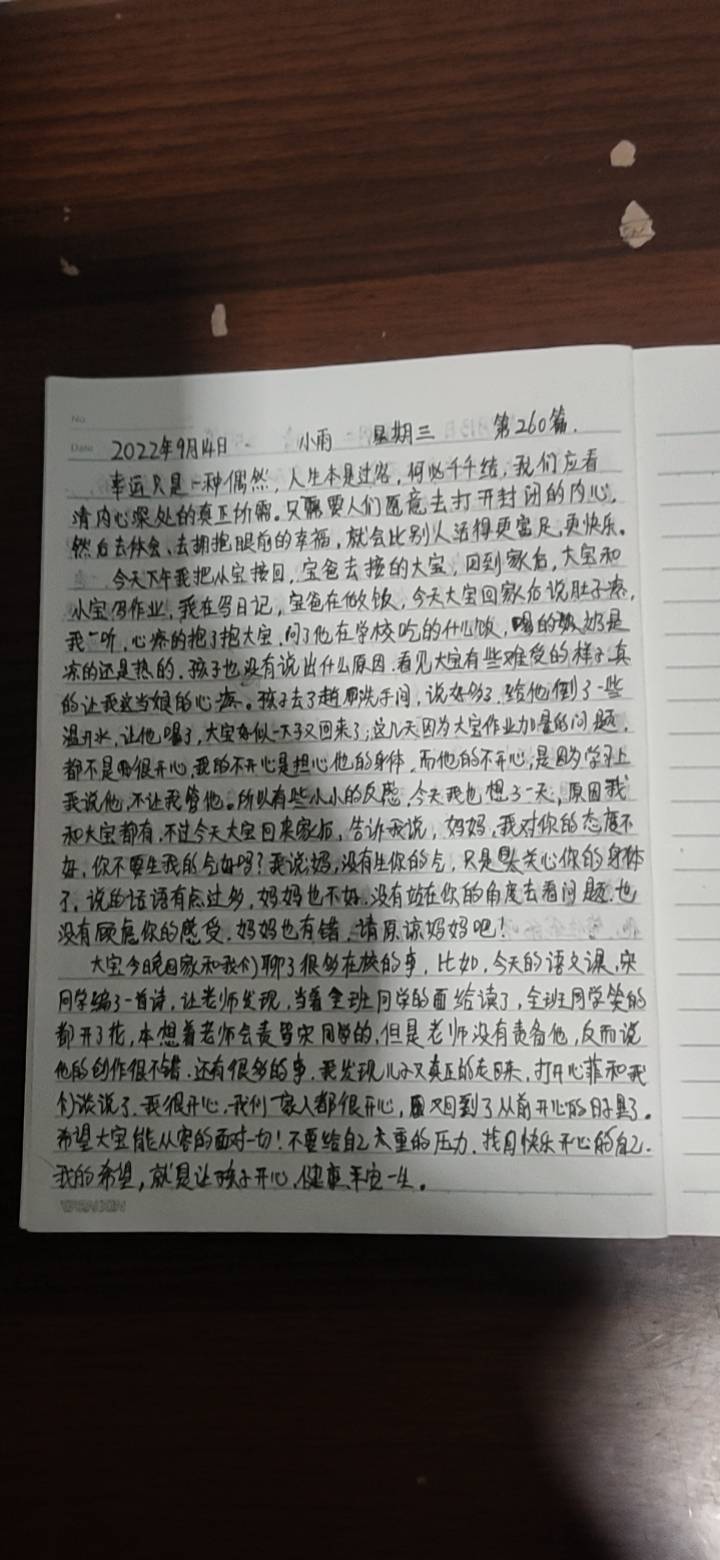 No
Date 2022年9月14日 小雨 星期三 第260篇.
幸运只是一种偶然,人生本是过客,何必千千结,我们应看
清内心深处的真正所需。只需要人们愿意去打开封闭的内心,
然后去体会、去拥抱眼前的幸福,就会比别人活得更富足,更快乐。
今天下午我把小宝接回,宝爸去接的大宝,回到家后,大宝和
小宝写作业,我在写日记,宝爸在做饭,今天大宝回家后说肚子疼,
我一听,心疼的抱了抱大宝,问了他在学校吃的什么饭,喝的奶是
凉的还是热的,孩子也没有说出什么原因,看见大宝有些难受的样子,真
的让我这当娘的心疼。孩子去了趟洗手间,说好多了,给他倒了一些
温开水,让他喝了,大宝好似一下子又回来了;这几天因为大宝作业加量的问题,
都不是很开心,我的不开心是担心他的身体,而他的不开心,是因为学习上
我说他,不让我管他。所以有些小小的反感,今天我也想了一天,原因我
和大宝都有,不过今天大宝回来家后,告诉我说,妈妈,我对你的态度不
好,你不要生我的气好吗?我说妈,没有生你的气,只是太关心你的身体
了,说的话语有点过多,妈妈也不好,没有站在你的角度去看问题,也
没有顾虑你的感受,妈妈也有错,请原谅妈妈吧!
大宝今晚回家和我们聊了很多在校的事,比如,今天的语文课,宋
同学编了一首诗,让老师发现,当着全班同学的面给读了,全班同学笑的
都开了花,本想着老师会责骂宋同学的,但是老师没有责备他,反而说
他的创作很不错,还有很多的事,我发现儿子又真正的走回来,打开心菲和我
们谈说了,我很开心,我们一家人都很开心,又回到了从前开心的日子里了。
希望大宝能从容的面对一切!不要给自己太重的压力,找回快乐开心的自己.
我的希望,就是让孩子开心,健康,平安一生。